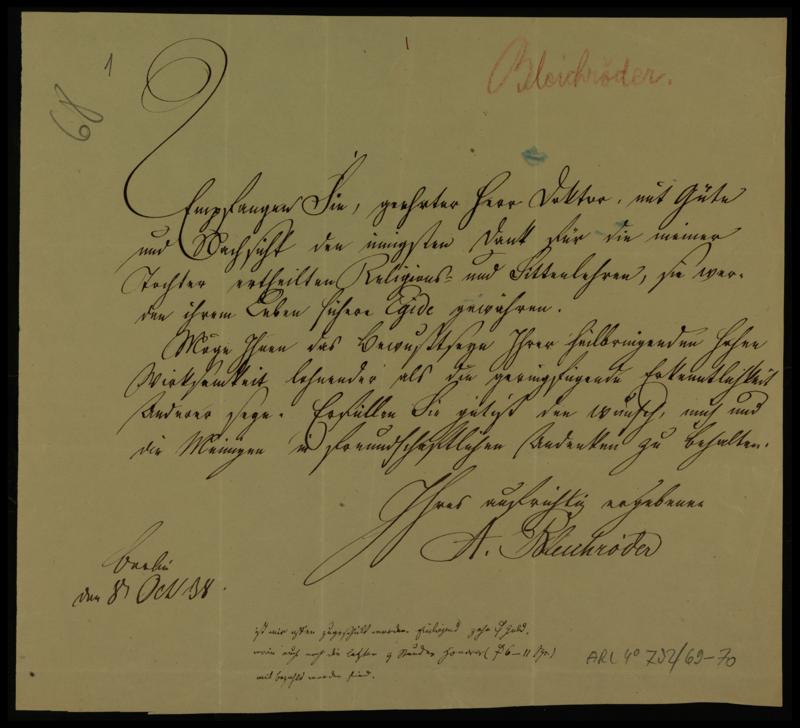 1
68
Bleichröder.
Empfangen Sie, geehrter Herr Doktor, mit Güte
und Nachsicht den innigsten Dank für die meiner
Tochter ertheilten Religions- und Sittenlehren, sie wer-
den ihrem Leben sichere Egide gewähren.
Möge Ihnen das Bewußtseyn Ihrer heilbringenden hohen
Wirksamkeit lohnender als die geringfügende Erkenntlichkeit
Anderer seyn. Erfüllen Sie gütigst den Wunsch, mich und
die Meinigen in freundschaftlichen Andenken zu behalten.
Ihres aufrichtig ergebenen
A. Bleichröder
Berlin
den 8 Oct 38.
ist mir zugeschickt worden. zehn
auch noch die letzten 9 Stunden Honorar
mit bezahlt worden sind.
ARL 4° 732/69-70